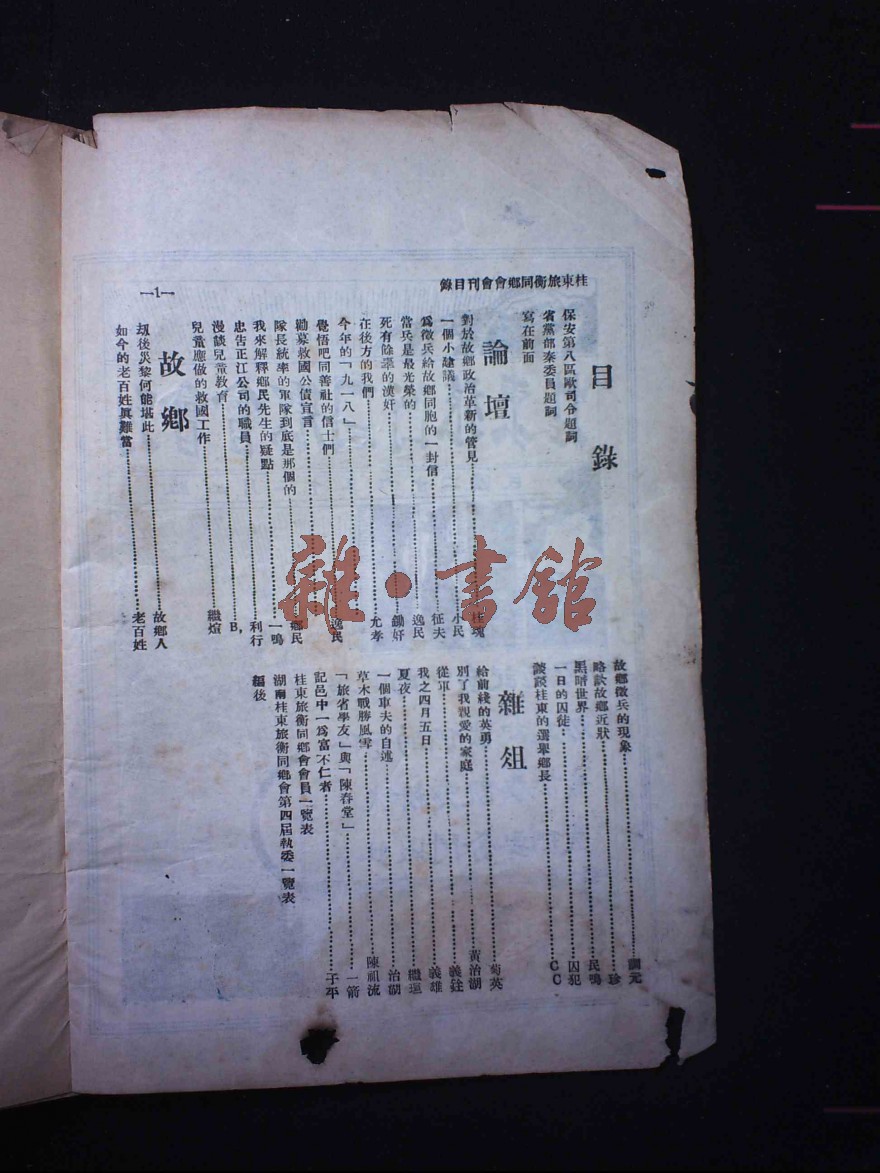 桂東旅衡同鄉會會刊目錄
目錄
保安第八區歐司令題詞
省黨部秦委員題詞
寫在前面
論壇
對於故鄉政治革新的管見 桂魂
一個小建議 小民
爲徵兵給故鄉同胞的一封信 征夫
當兵是最光榮的 逸民
死有餘辜的漢奸 鋤奸
在後方的我們 尤孝
今年的「九一八」
覺悟吧同善社的信士們 逸民
勸募救國公債宣言
隊長統率的軍隊到底是那個的 鄉民
我來解釋鄉民先生的疑點 一鳴
忠告正江公司的職員 利行
漫談兒童教育 B,
兒童應做的救國工作 繼煊
故鄉
刼後災黎何能堪此 故鄉人
如今的老百姓眞難當 老百姓
故鄉徵兵的現象 元
略談故鄉近狀 珍
黑暗世界 民鳴
一日的囚徒 囚犯
談談桂東的選舉鄉長 CC
雜俎
給前綫的英勇 菊英
別了我親愛的家庭 黃治湖
從軍 義銈
我之四月五日 義雄
夏夜 繼垣
一個車夫的自述 治湖
草木戰勝風雪 陳祖流
「旅省學友」與「陳春堂」 一箭
記邑中一爲富不仁者 子平
桂東旅衡同鄉會會員一覽表
湖南桂東旅衡同鄉會第四屆執委一覽表
編後
—1—
雜·書館